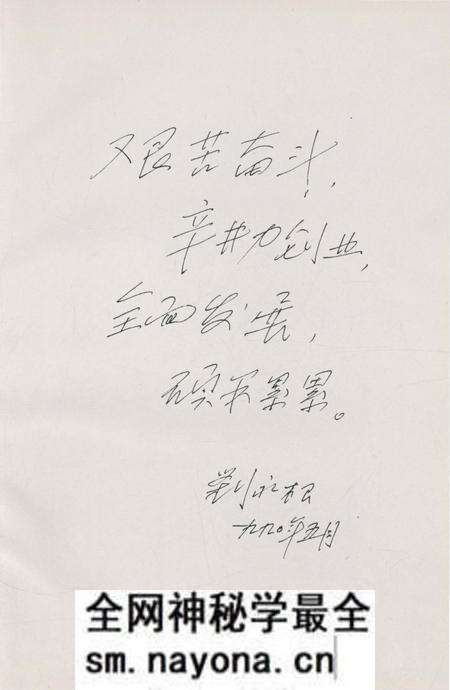 艰苦奋斗，
辛勤创业，
全面发展，
硕果累累。
刘永根
九九〇年五月
全网神秘学最全
sm.nayona.cn